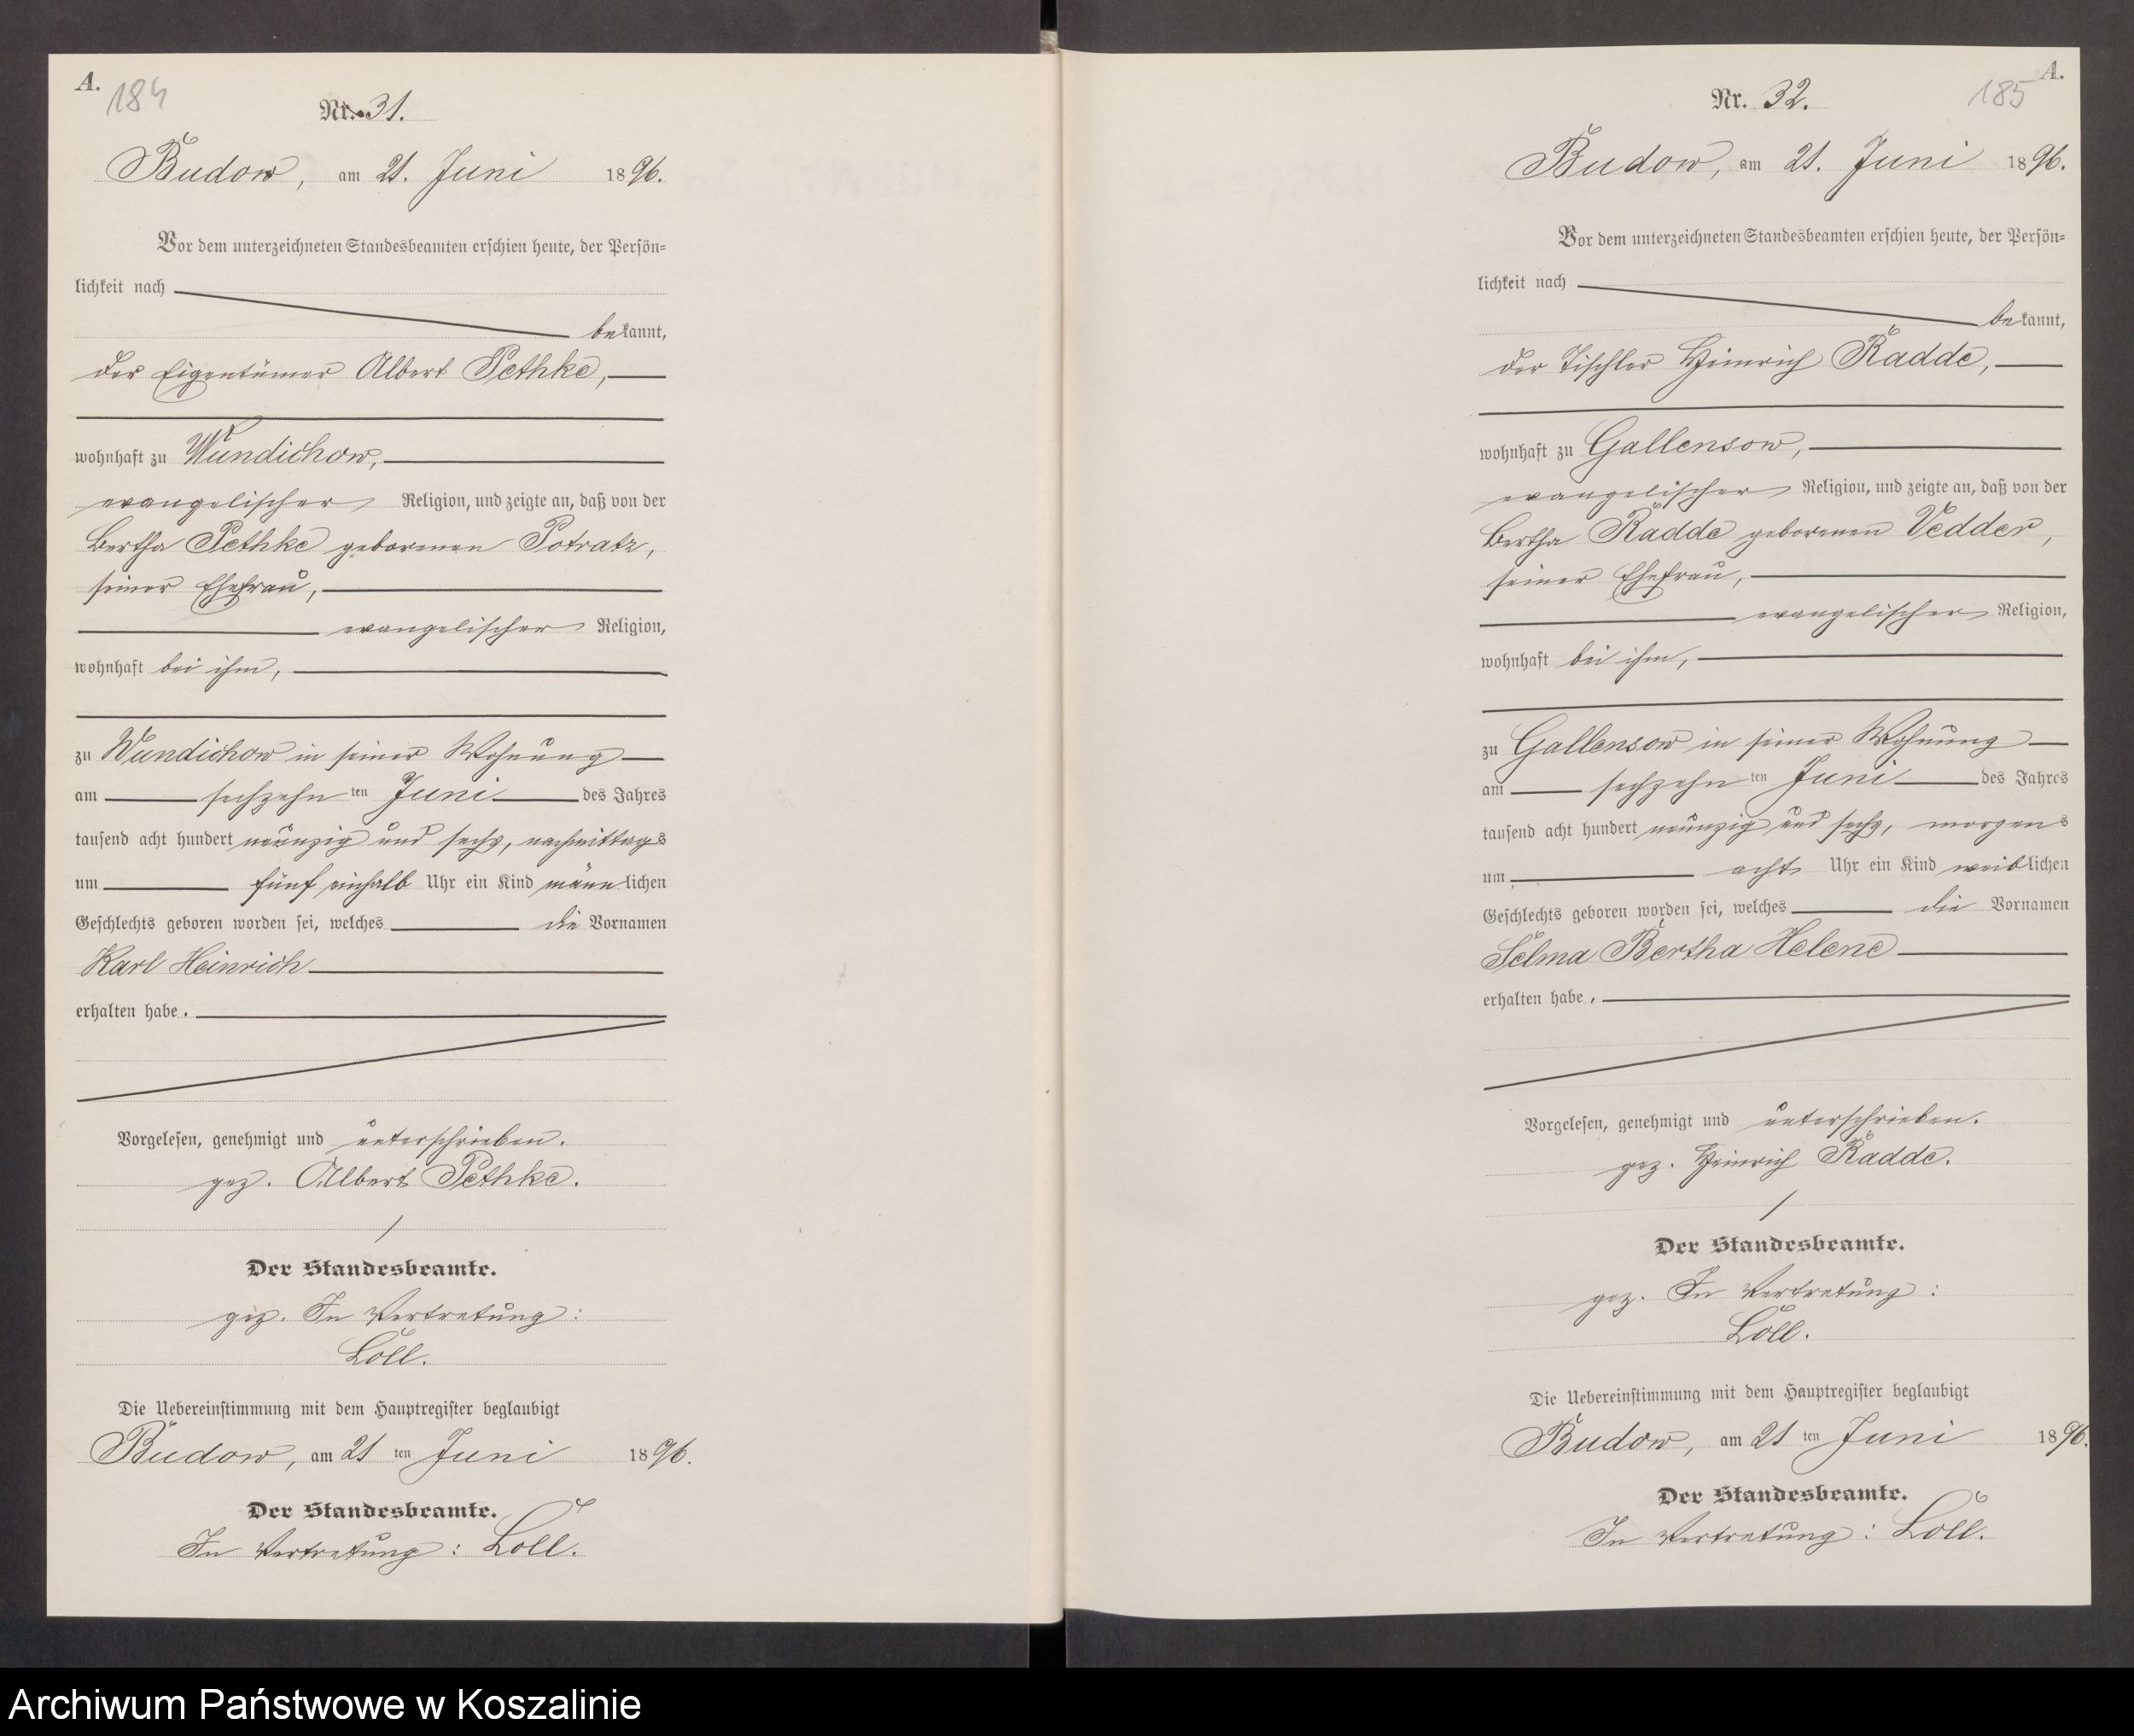 A.
184
Nr. 31.
Budow, am 21. Juni 1896.
Vor dem unterzeichneten Standesbeamten erschien heute, der Persön-
lichkeit nach
bekannt,
der Eigentümer Albert Pethke,
wohnhaft zu Wundichow,
evangelischer Religion, und zeigte an, daß von der
Bertha Pethke geborenen Potratz,
seiner Ehefrau,
evangelischer Religion,
wohnhaft bei ihm,
zu Wundichow in seiner Wohnung
am sechzehnten Juni des Jahres
tausend acht hundert neunzig und sechs, nachmittags
um fünf einhalb Uhr ein Kind männlichen
Geschlechts geboren worden sei, welches die Vornamen
Karl Heinrich
erhalten habe.
Vorgelesen, genehmigt und unterschrieben.
gez. Albert Pethke.
Der Standesbeamte.
gez. In Vertretung:
Loll.
Die Uebereinstimmung mit dem Hauptregister beglaubigt
Budow, am 21 ten Juni 1896.
Der Standesbeamte.
In Vertretung: Loll.
A.
185
Nr. 32.
Budow, am 21. Juni 1896.
Vor dem unterzeichneten Standesbeamten erschien heute, der Persön-
lichkeit nach
bekannt,
der Tischler Heinrich Radde,
wohnhaft zu Gallensow,
evangelischer Religion, und zeigte an, daß von der
Bertha Radde geborenen Vedder,
seiner Ehefrau,
evangelischer Religion,
wohnhaft bei ihm,
zu Gallensow in seiner Wohnung
am sechzehnten Juni des Jahres
tausend acht hundert neunzig und sechs, morgens
um acht Uhr ein Kind weiblichen
Geschlechts geboren worden sei, welches die Vornamen
Selma Bertha Helene
erhalten habe.
Vorgelesen, genehmigt und unterschrieben.
gez. Heinrich Radde.
Der Standesbeamte.
gez. In Vertretung:
Loll.
Die Uebereinstimmung mit dem Hauptregister beglaubigt
Budow, am 21 ten Juni 1896.
Der Standesbeamte.
In Vertretung: Loll.
Archiwum Państwowe w Koszalinie